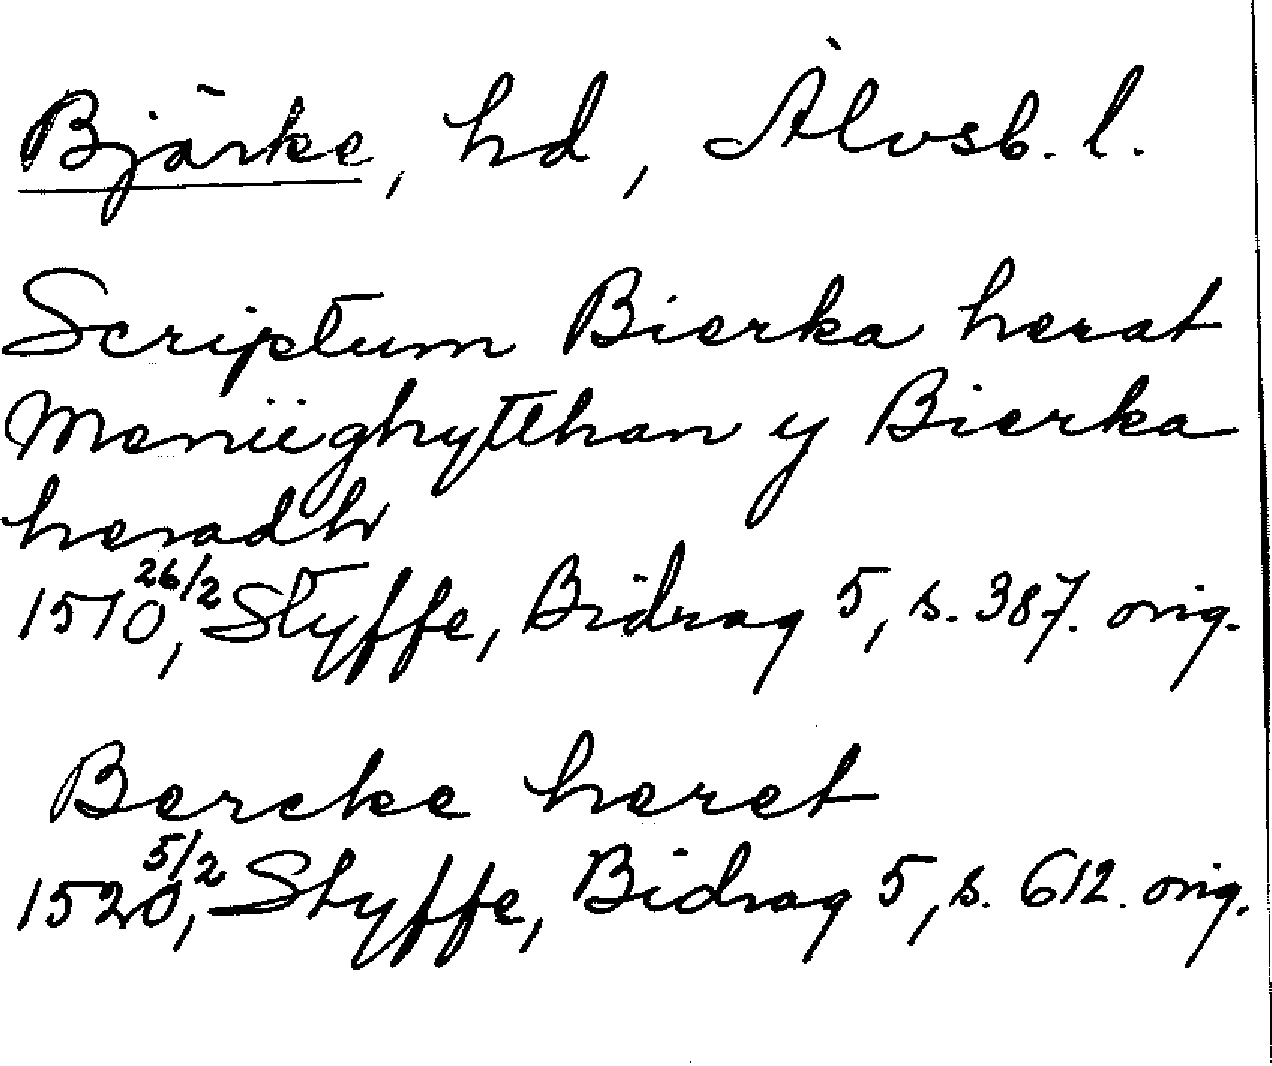 Bjärke, hd, Älvsb. l.
Scriptum Bierka herat
Meniighytthan y Bierka
heradh
1510 26/2, Styffe, Bidrag 5, s. 387. orig.
Bercke heret
1520 5/2, Styffe, Bidrag 5, s. 612. orig.